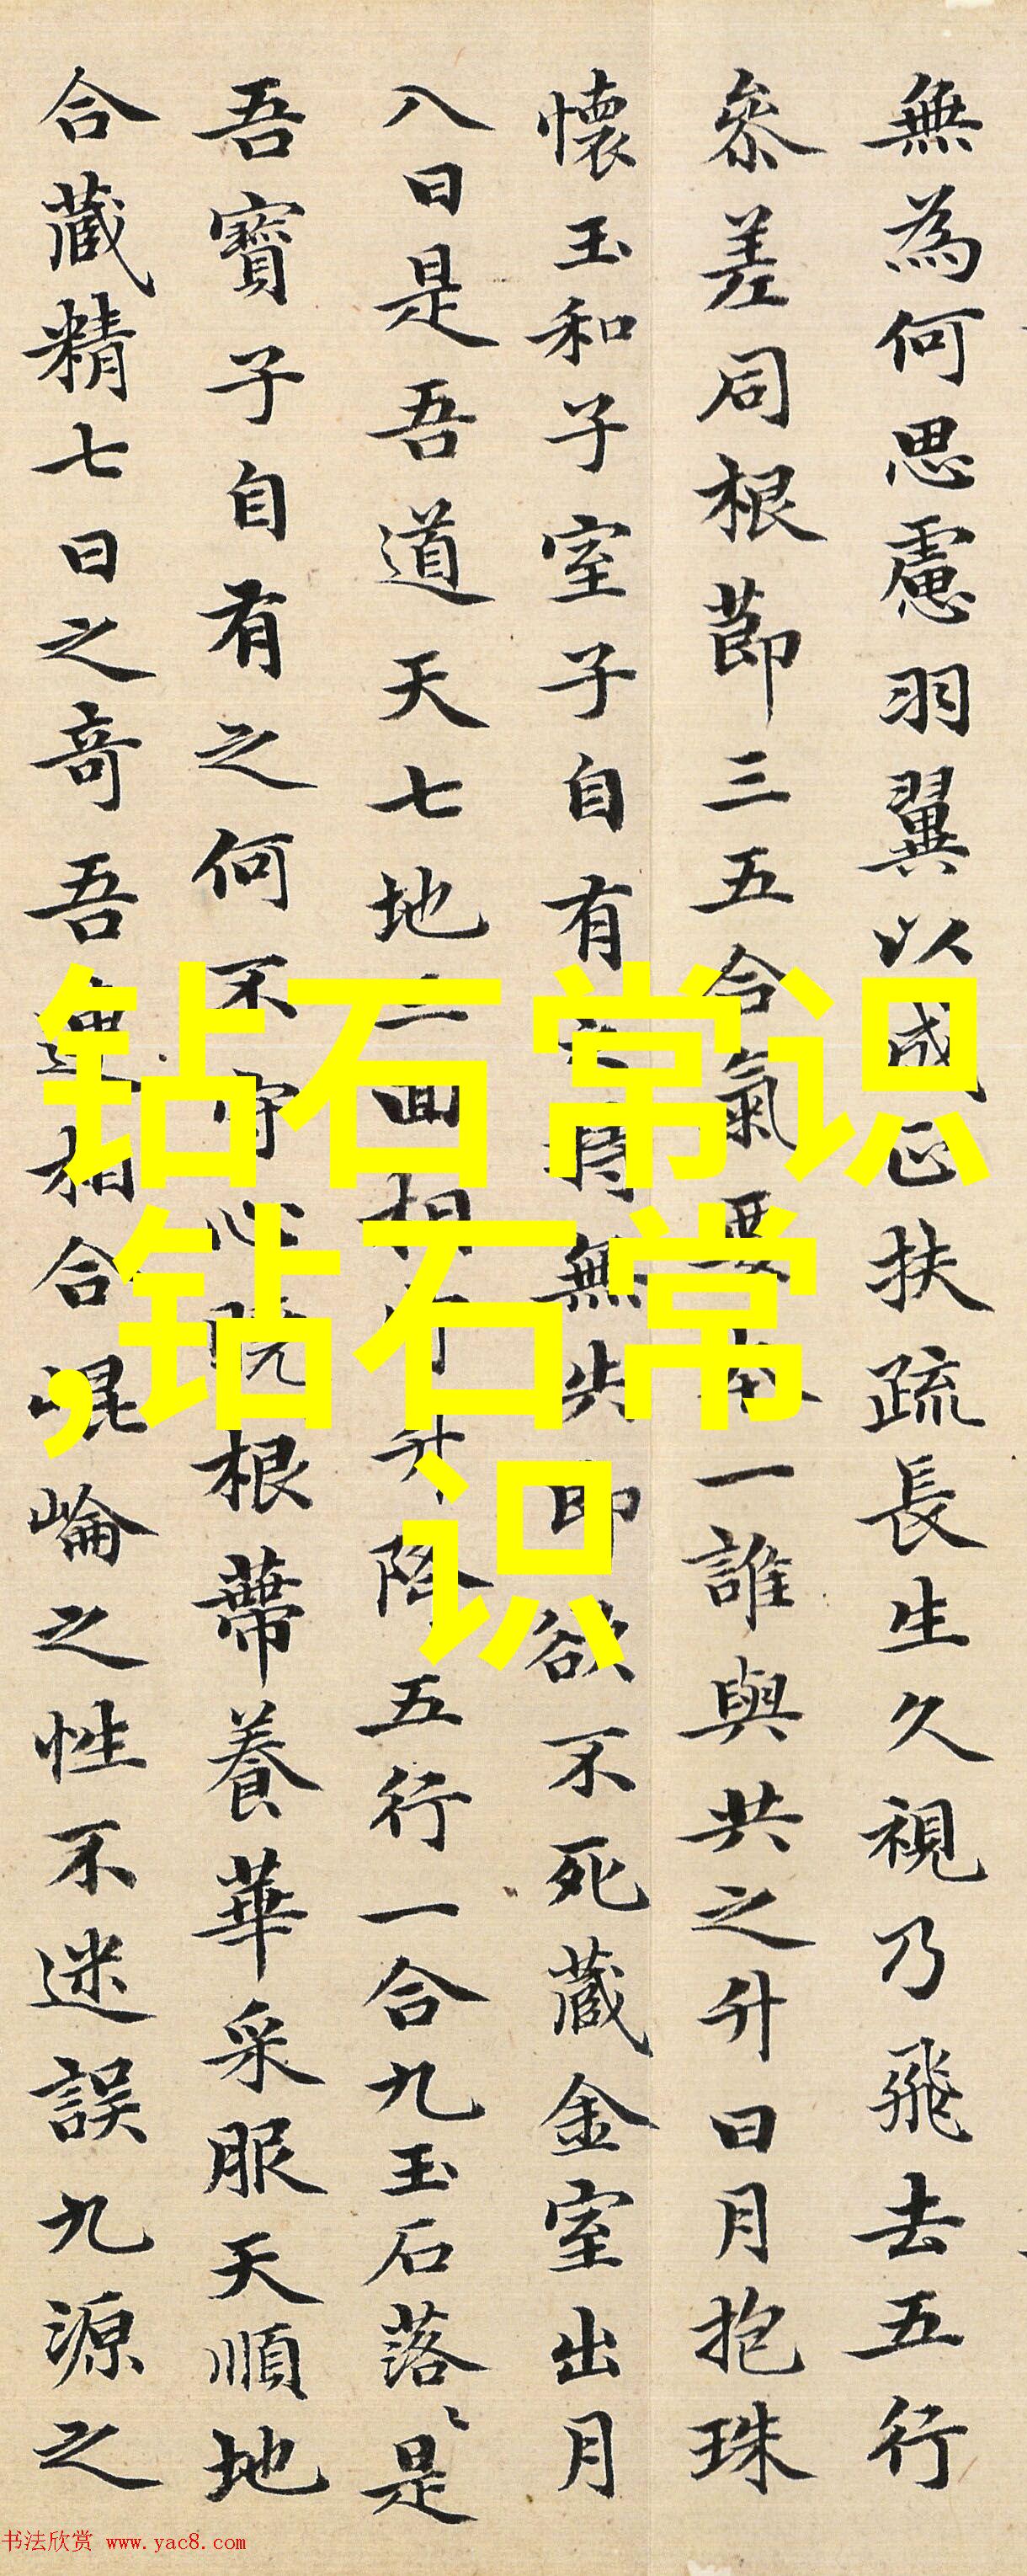 無為何思慮羽翼以成正扶疏長生久視乃飛去五行
參差同根莭三五合氣要本一誰與共之升日月抱珠
懷玉和子室子自有之持無失即欲不死藏金室出月
八日是吾道天七地三回相守升降五行一合九玉石落〻是
吾寶子自有之何不守心曉根蔕養華采服天順地
合藏精七日之奇吾連相合崐崘之性不迷誤九源之
钻石常识
,钻石常
识
书法欣赏 www.yac8.com